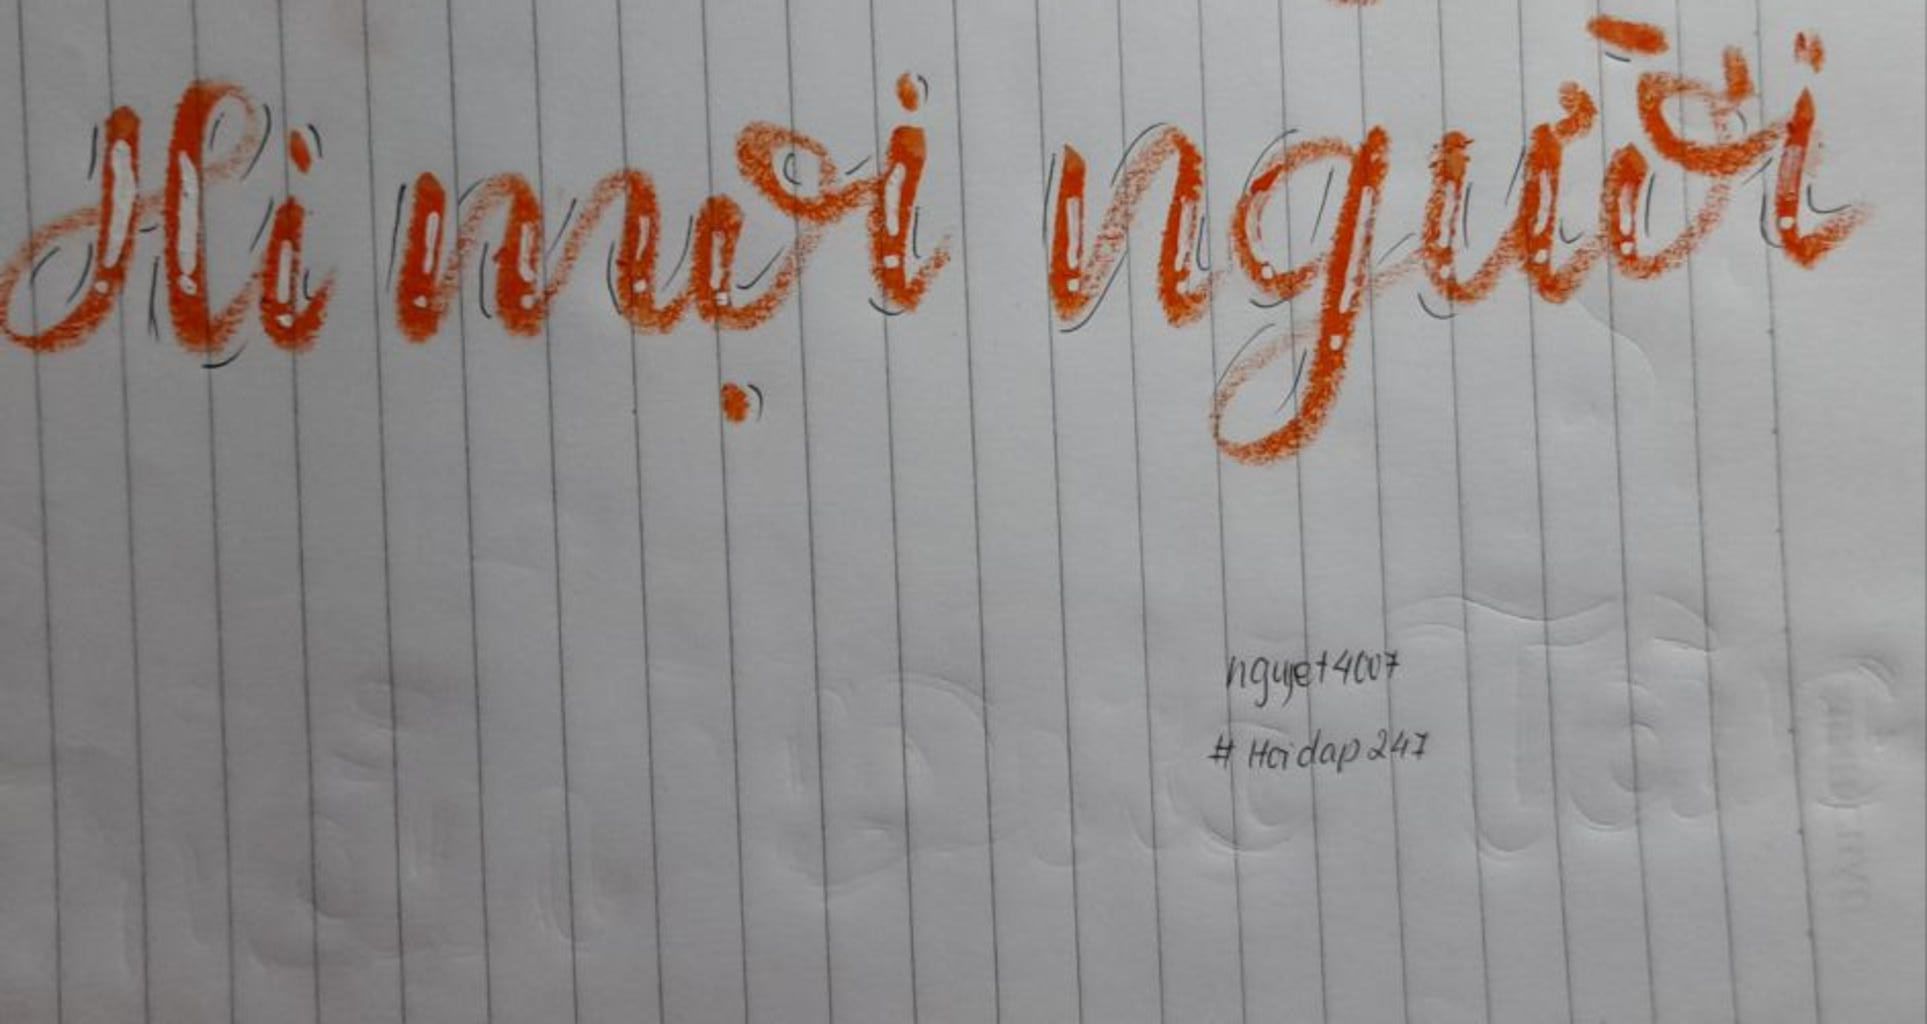 Hi mọi người
nguyet4007
# Hoidap247